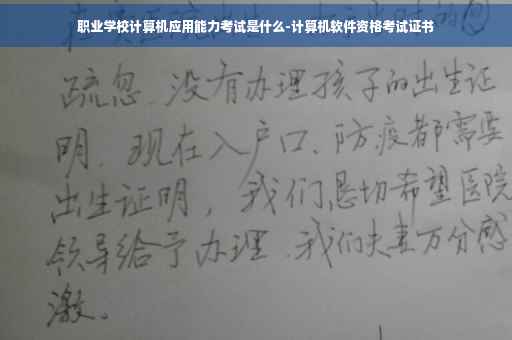 职业学校计算机应用能力考试是什么-计算机软件资格考试证书
疏忽、没有办理孩子的出生证
明、现在入户口、防疫都需要
出生证明，我们恳切希望医院
领导给予办理、我们夫妻万分感
激。